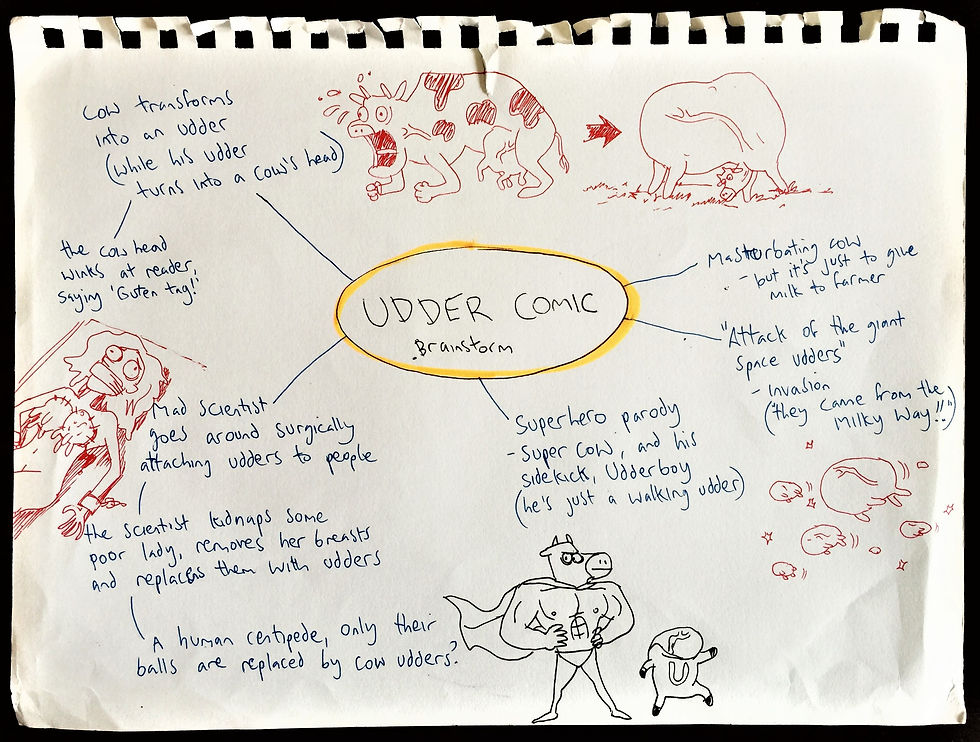 Cow transforms
into an udder
(while his udder
turns into a cow's head)
the cow head
winks at reader,
saying 'Guten tag!'
UDDER COMIC
Brainstorm
Masturbating cow
- but it's just to give
milk to farmer
"Attack of the giant
space udders"
- Invasion
(they came from the
Milky Way!!")
Mad Scientist
goes around surgically
attaching udders to people
the scientist kidnaps some
poor lady, removes her breasts
and replaces them with udders
A human centipede, only their
balls are replaced by cow udders?
Superhero parody
- Super Cow, and his
sidekick, Udderboy
(he's just a walking udder)
U